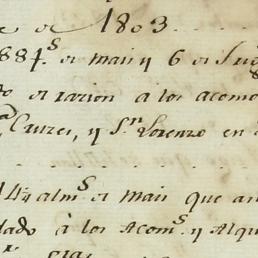 de 1803
884,s de maiz y 6 de
do de racion a los acomo
Cruzes, y Sn Lorenzo en
14¼ alms de maiz que an
dado a los Acoms y Alqui